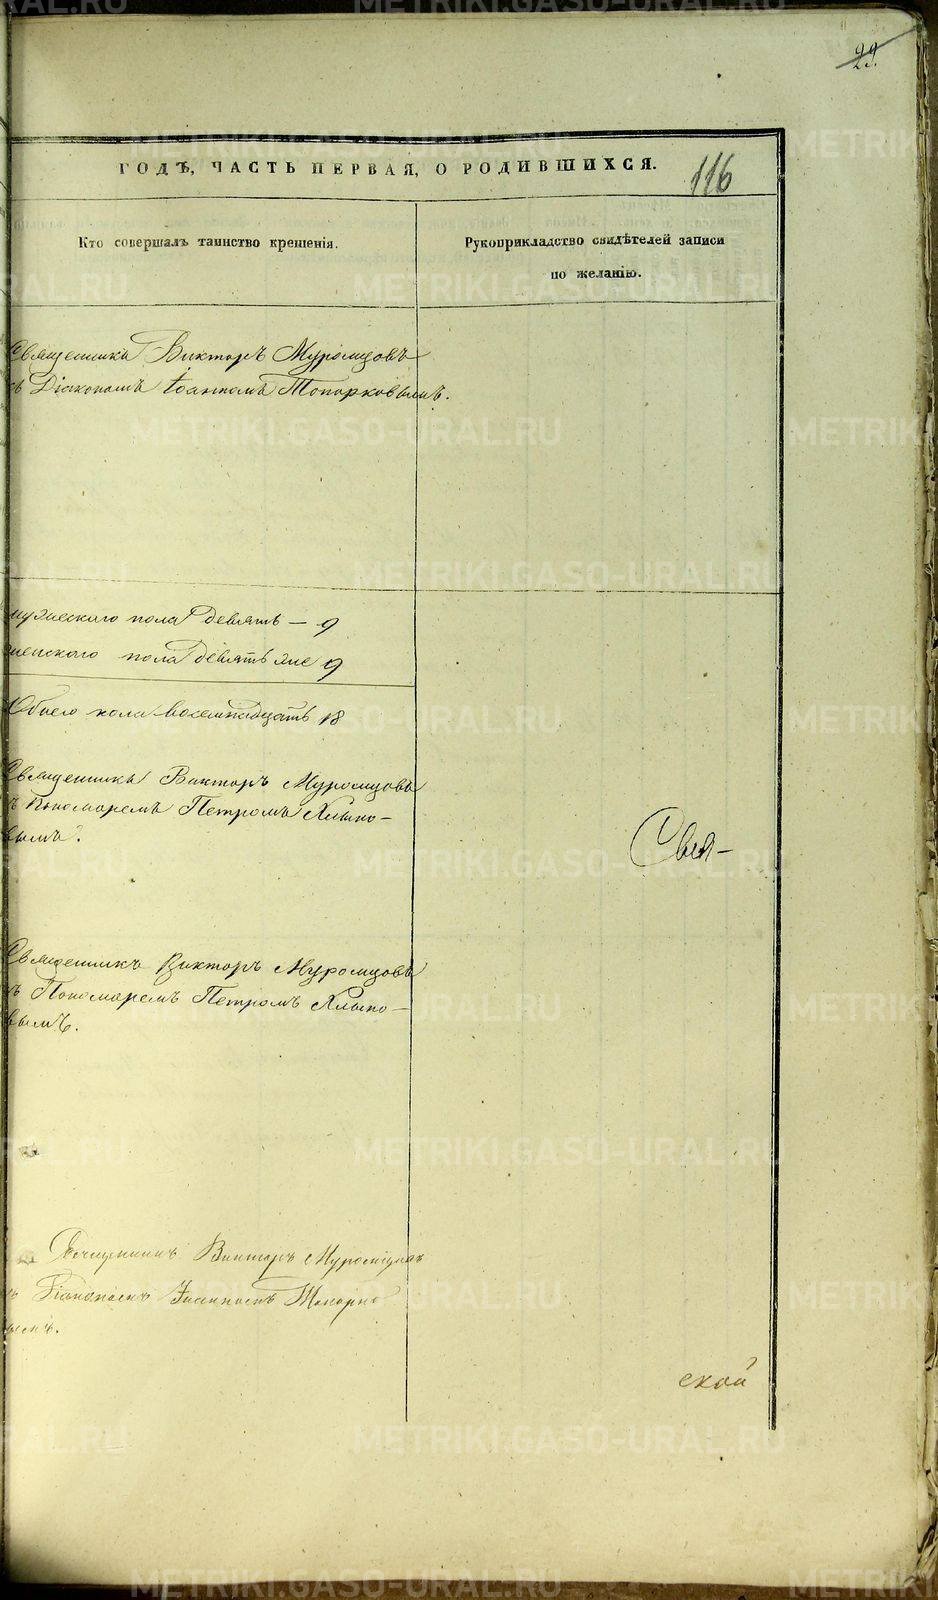 29.
ГОДѢ, ЧАСТЬ ПЕРВАЯ, О РОДИВШИХСЯ.
116
Кто совершалъ таинство крещенія.
Рукоприкладство свидѣтелей записи
по желанію.
Священникъ Викторъ Муромцовъ
съ Діакономъ Іоанномъ Топорковымъ.
мужескаго пола девять — 9
женскаго пола девять же 9
Обоего пола восемнадцать 18
Священникъ Викторъ Муромцовъ
съ Пономаремъ Петромъ Хлыно-
вымъ.
Свя-
Священникъ Викторъ Муромцовъ
съ Пономаремъ Петромъ Хлыно-
вымъ.
Священникъ Викторъ Муромцовъ
съ Діакономъ Іоанномъ Топорко
вымъ.
ской
METRIKI.GASO-URAL.RU